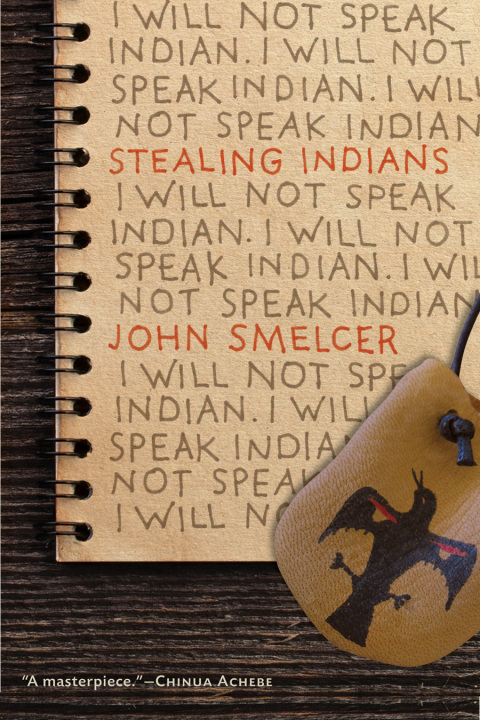 I WILL NOT SPEAK
INDIAN. I WILL NOT
SPEAK INDIAN. I WILL
NOT SPEAK INDIAN
STEALING INDIANS
I WILL NOT SPEAK
INDIAN. I WILL NOT
SPEAK INDIAN. I WIL
NOT SPEAK INDIAN
JOHN SMELCER
I WILL NOT SPE
INDIAN. I WILL
SPEAK INDIA
NOT SPEA
I WILL NO
“A masterpiece.”—CHINUA ACHEBE